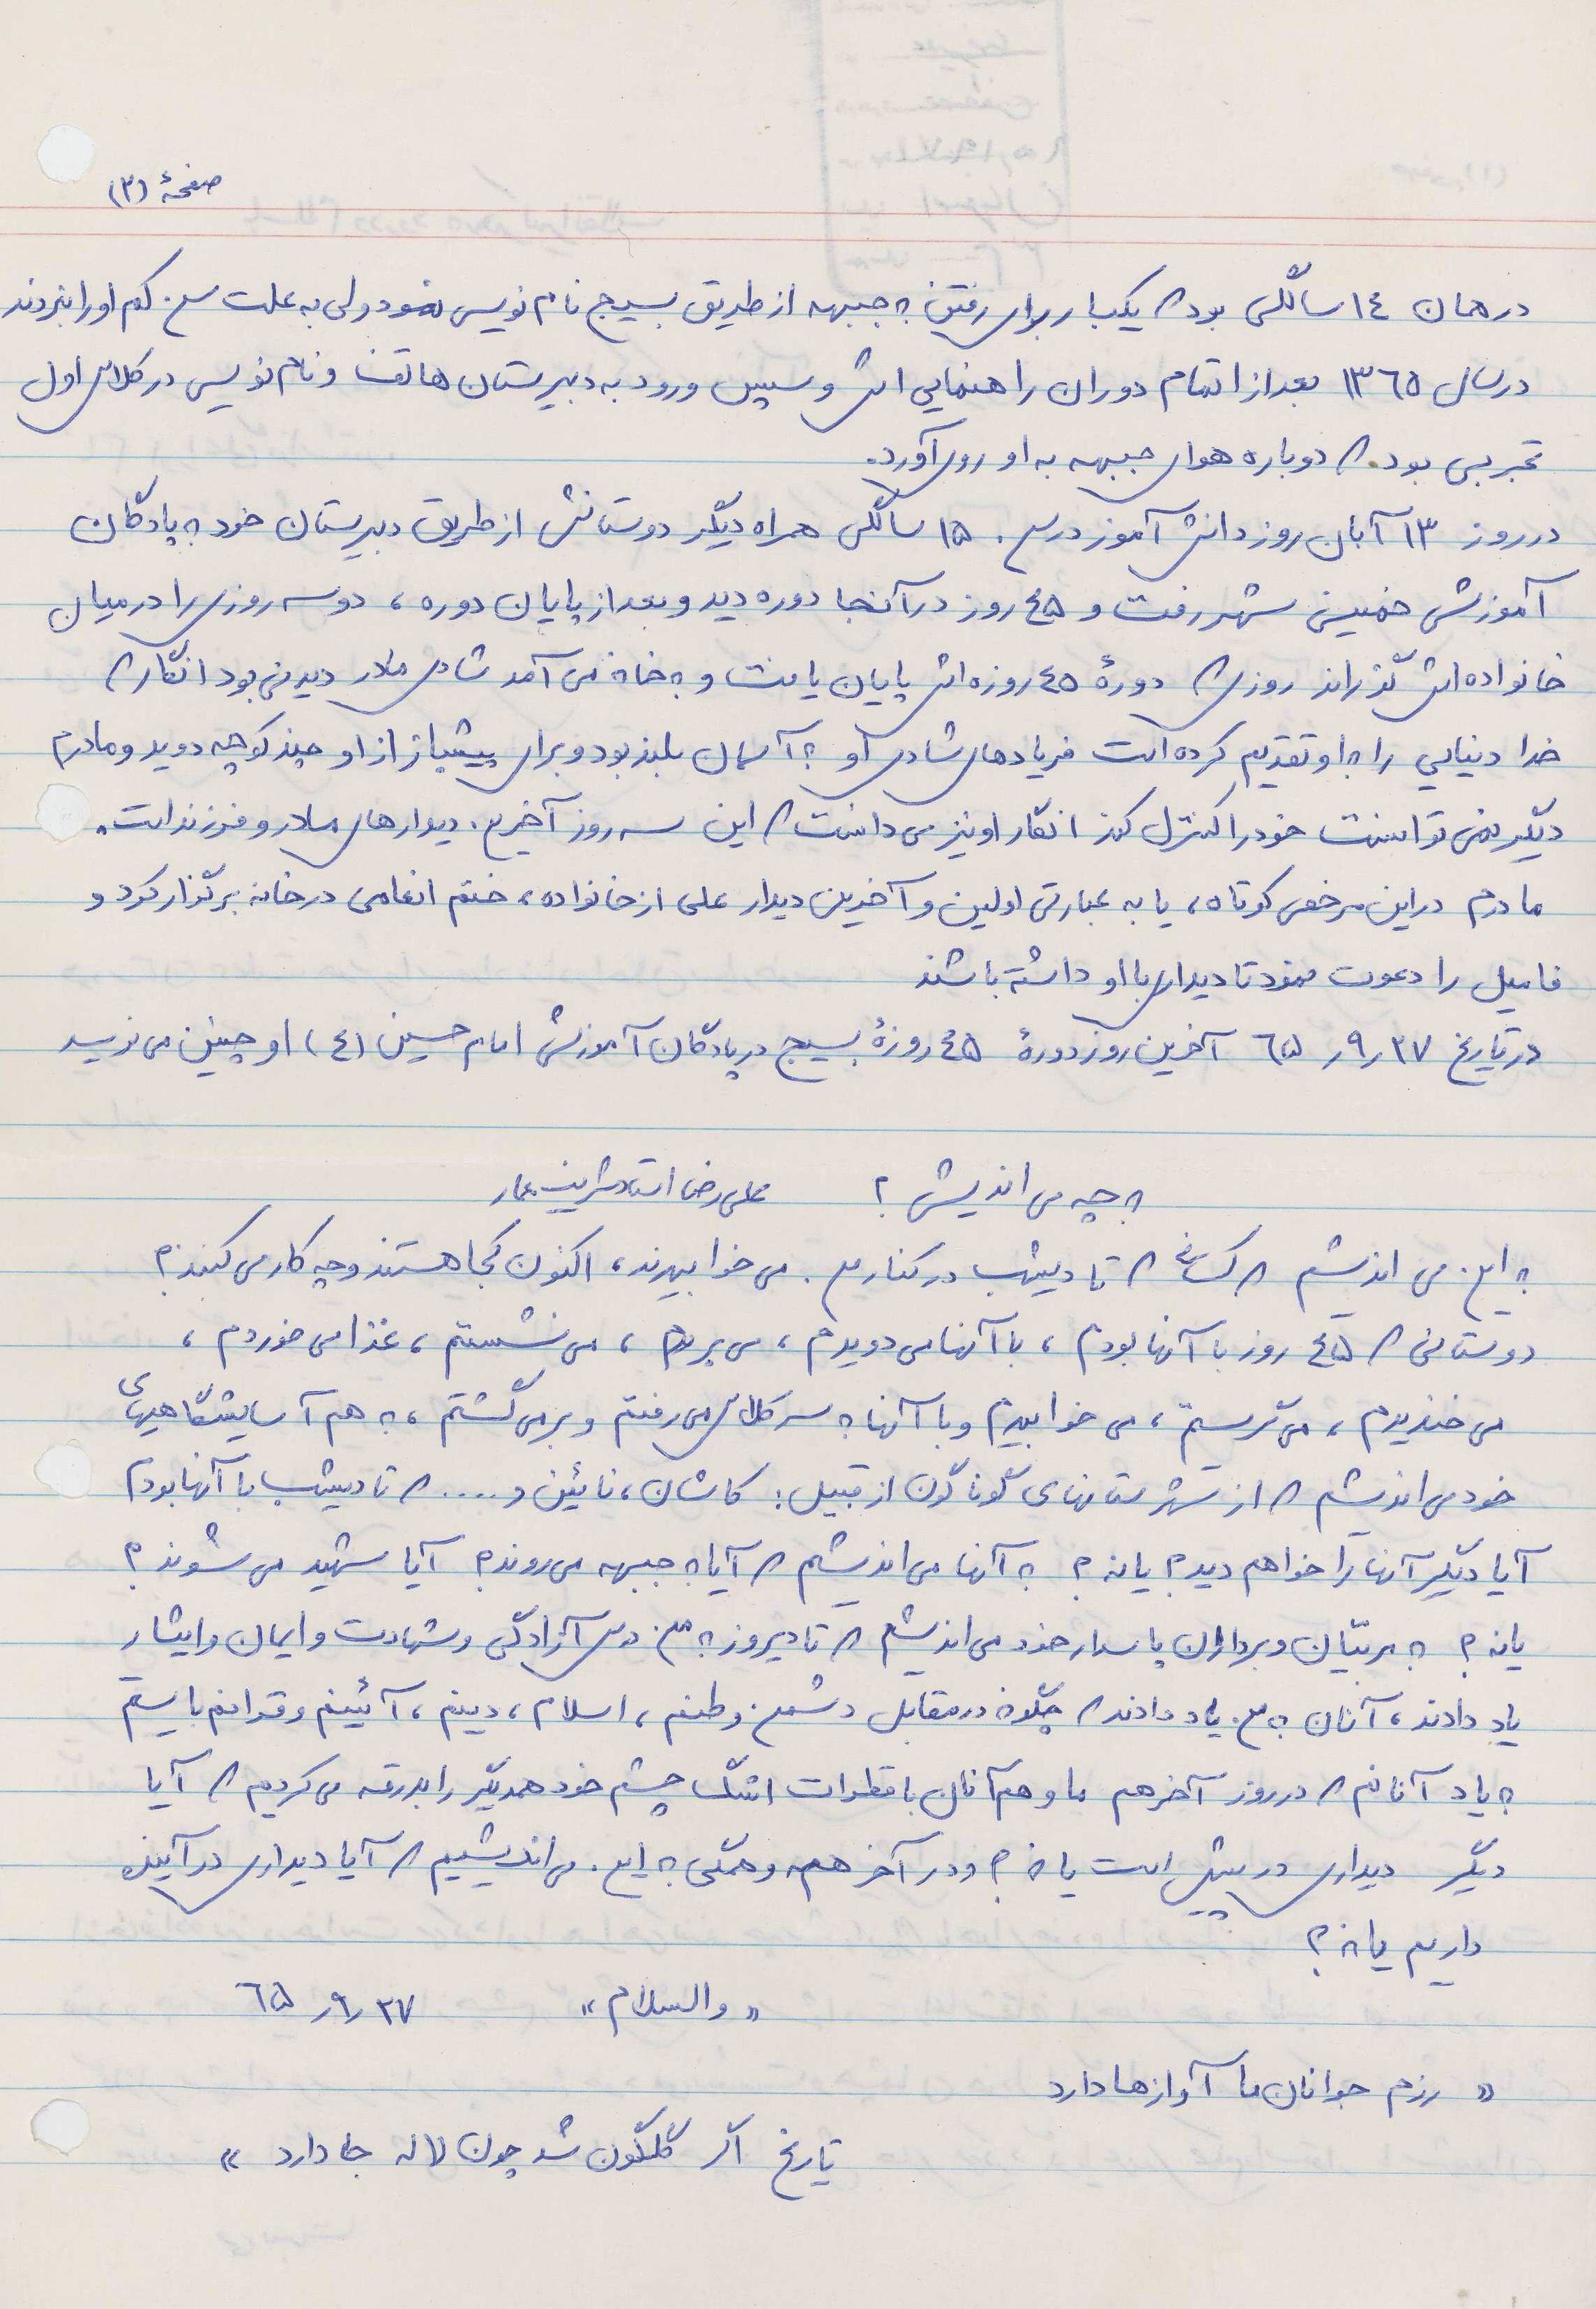 صفحهٔ (۳)
در همان ۱٤ سالگی بود که یکبار برای رفتن به جبهه از طریق بسیج نام نویسی نمود ولی به علت سن کم او را نبردند
در سال ۱۳٦۵ بعد از اتمام دوران راهنمایی اش و سپس ورود به دبیرستان هاتف و نام نویسی در کلاس اول
تجربی بود که دوباره هوای جبهه به او روی آورد.
در روز ۱۳ آبان روز دانش آموز در سن ۱۵ سالگی همراه دیگر دوستانش از طریق دبیرستان خود به پادگان
آموزشی خمینی شهر رفت و ٤۵ روز در آنجا دوره دید و بعد از پایان دوره ، دو سه روزی را در میان
خانواده اش گذراند روزی که دورهٔ ٤۵ روزه اش پایان یافت و به خانه می آمد شادی مادر دیدنی بود انگار که
خدا دنیایی را به او تقدیم کرده است فریادهای شادی او به آسمان بلند بود و برای پیشباز از او چند کوچه دوید و مادرم
دیگر نمی توانست خود را کنترل کند انگار او نیز می دانست که این سه روز آخرین دیدارهای مادر و فرزند است.
مادرم در این مرخصی کوتاه ، یا به عبارتی اولین و آخرین دیدار علی از خانواده ، ختم انعامی در خانه برگزار کرد و
فامیل را دعوت نمود تا دیداری با او داشته باشند
در تاریخ ۲۷ر۹ر ٦۵ آخرین روز دورهٔ ٤۵ روزهٔ بسیج در پادگان آموزشی امام حسین (ع) او چنین می نویسد
به چه می اندیشی ؟ علی رضا استاد شریف عمار
به این می اندیشم که کسانی که تا دیشب در کنار من می خوابیدند ، اکنون کجا هستند و چه کار می کنند ؟
دوستانی که ٤۵ روز با آنها بودم ، با آنها می دویدم ، می پریدم ، می نشستم ، غذا می خوردم ،
می خندیدم ، می گریستم ، می خوابیدم و با آنها به سر کلاس می رفتم و برمی گشتم ، به هم آسایشگاهیهای
خود می اندیشم که از شهرستانهای گوناگون از قبیل : کاشان ، نائین و .... که تا دیشب با آنها بودم
آیا دیگر آنها را خواهم دید ؟ یا نه ؟ به آنها می اندیشم که آیا به جبهه می روند ؟ آیا شهید می شوند ؟
یا نه ؟ به مربّیان و برداران پاسدار خود می اندیشم که تا دیروز به من درس آزادگی و شهادت و ایمان و ایثار
یاد دادند ، آنان به من یاد دادند که چگونه در مقابل دشمن وطنم ، اسلام ، دینم ، آئینم و قرآنم بایستم
به یاد آنانم که در روز آخر هم ما و هم آنان با قطرات اشک چشم خود همدیگر را بدرقه می کردیم که آیا
دیگر دیداری در پیش است یا نه ؟ و در آخر همه و همگی به این می اندیشیم که آیا دیداری در آینده
داریم یا نه ؟
« والسلام » ۲۷ر۹ر ٦۵
« رزم جوانان ما آوازها دارد
تاریخ اگر گلگون شد چون لاله جا دارد »